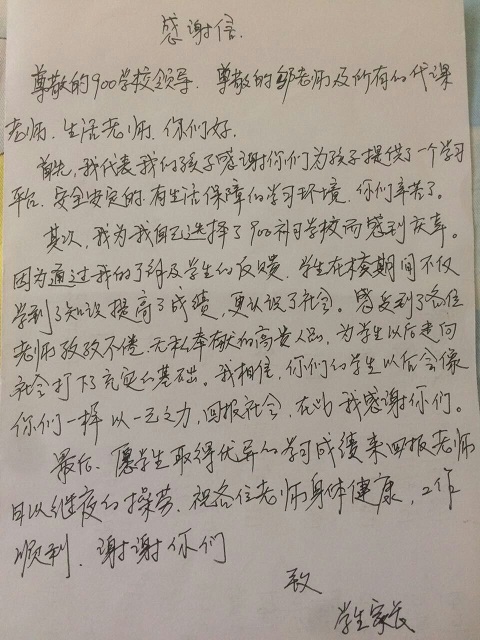 感谢信.
尊敬的900学校领导、尊敬的邹老师及所有的代课
老师、生活老师、你们好.
首先,我代表我们孩子感谢你们为孩子提供了一个学习
平台、安全安定的、有生活保障的学习环境、你们辛苦了。
其次,我为我自己选择了900补习学校而感到庆幸。
因为通过我的了解及学生的反馈、学生在校期间不仅
学到了知识提高了成绩、更认识了社会。感受到了各位
老师孜孜不倦、无私奉献的高贵人品,为学生以后走向
社会打下了充实的基础。我相信,你们的学生以后会像
你们一样以一己之力,回报社会,在此我感谢你们。
最后、愿学生取得优异的学习成绩来回报老师
日以继夜的操劳、祝各位老师身体健康,工作
顺利、谢谢你们
致
学生家长